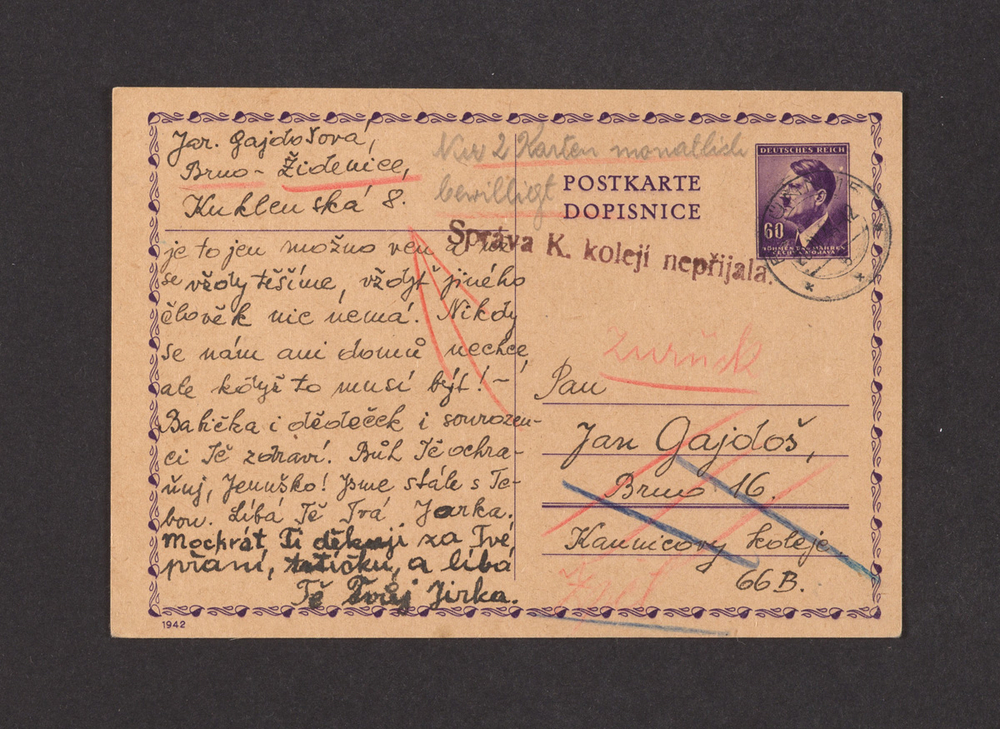 Jar. Gajdošová,
Brno - Židenice,
Kuklenská 8.
Nur 2 Karten monatlich
bewilligt
POSTKARTE
DOPISNICE
DEUTSCHES REICH
60
BÖHMEN UND MÄHREN
Správa K. kolejí nepřijala.
je to jen možno ven a na
se vždy těšíme, vždyť jiného
člověk nic nemá. Nikdy
se nám ani domů nechce,
ale když to musí být! -
Babička i dědeček i sourozen-
ci Tě zdraví. Bůh Tě ochra-
ňuj, Jenuško! Jsme stále s Te-
bou. Líbá Tě Tvá Jarka.
Mockrát Ti děkuji za Tvé
přání, tatíčku, a líbá
Tě Tvůj Jirka.
Zurück
Pan
Jan Gajdoš,
Brno 16.
Kaunicovy koleje
66 B.
1942